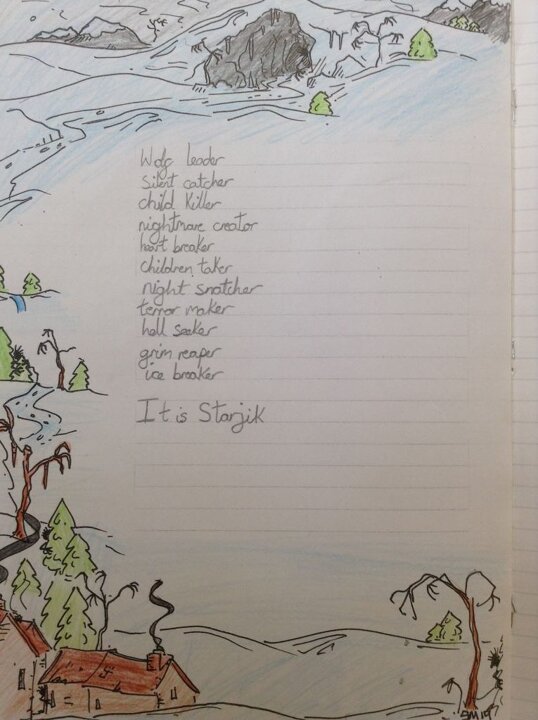 Wolf leader
Silent catcher
child Killer
nightmare creator
heart breaker
children taker
night snatcher
terror maker
hell seeker
grim reaper
ice breaker
It is Starjik